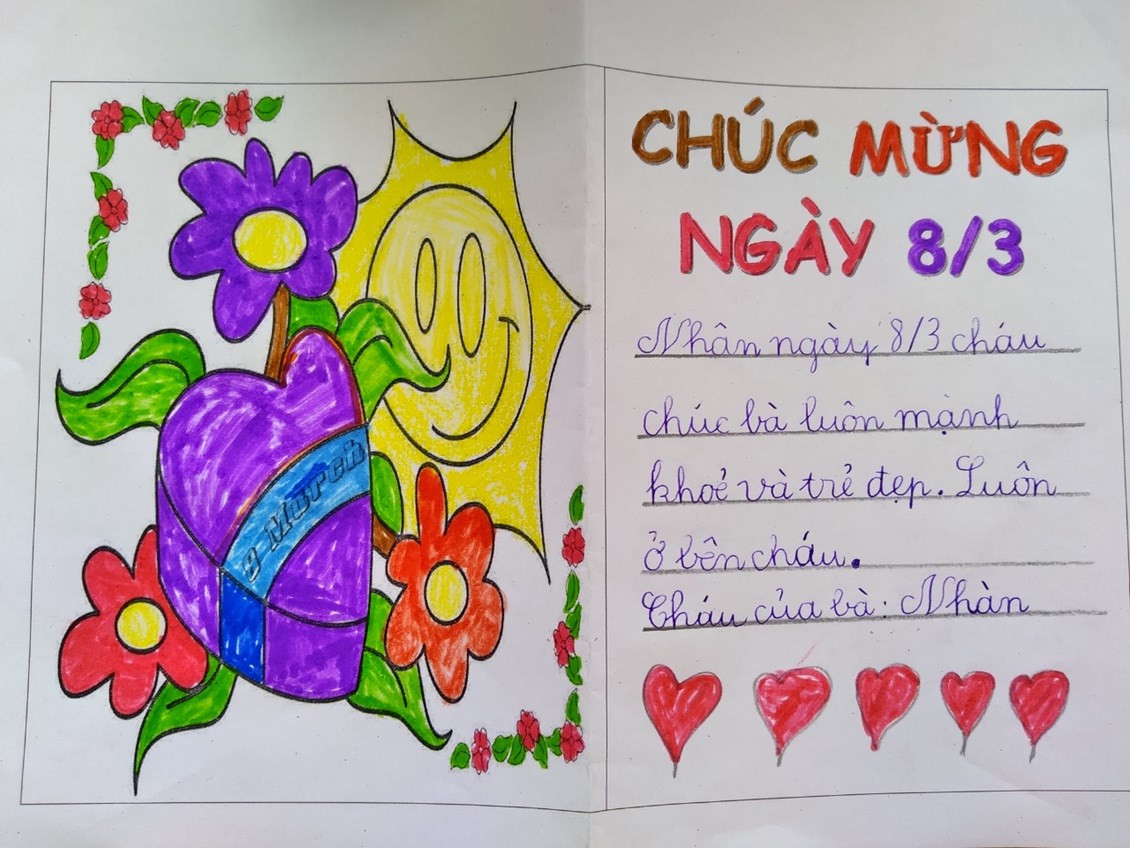 8 Марта
CHÚC MỪNG
NGÀY 8/3
Nhân ngày 8/3 cháu
chúc bà luôn mạnh
khoẻ và trẻ đẹp. Luôn
ở bên cháu.
Cháu của bà: Nhàn